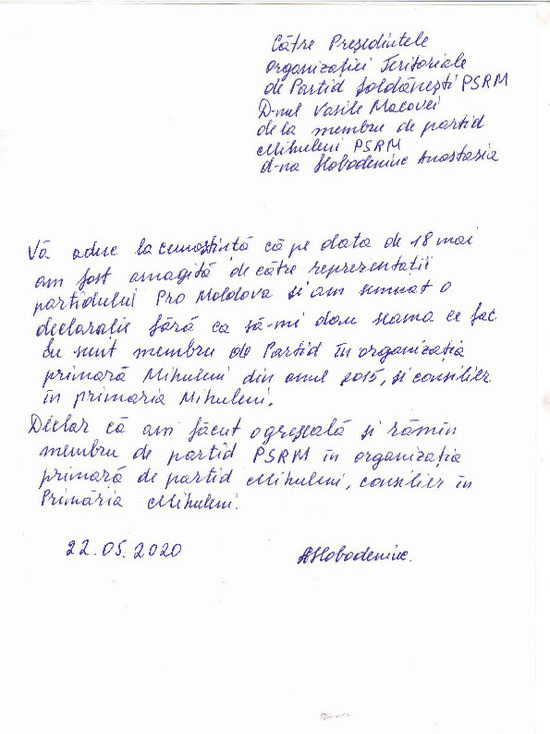 Către Președintele
Organizației Teritoriale
de Partid Șoldănești PSRM
D-nul Vasile Macovei
de la membru de partid
Mihuleni PSRM
d-na Slobodeniuc Anastasia
Vă aduc la cunoștință că pe data de 18 mai
am fost amagită de către reprezentații
partidului Pro Moldova și am semnat o
declarație fără ca să-mi dau seama ce fac
Eu sunt membru de Partid în organizația
primară Mihuleni din anul 2015, și consilier
în primaria Mihuleni.
Declar că am făcut o greșeală și rămîn
membru de partid PSRM în organizația
primară de partid Mihuleni, consilier în
Primăria Mihuleni.
22.05.2020 ASlobodeniuc.